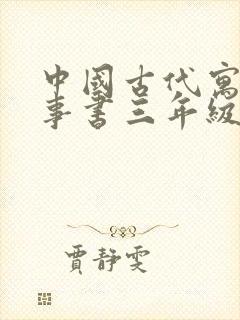 中國古代寓
事書三年級
賈靜雯